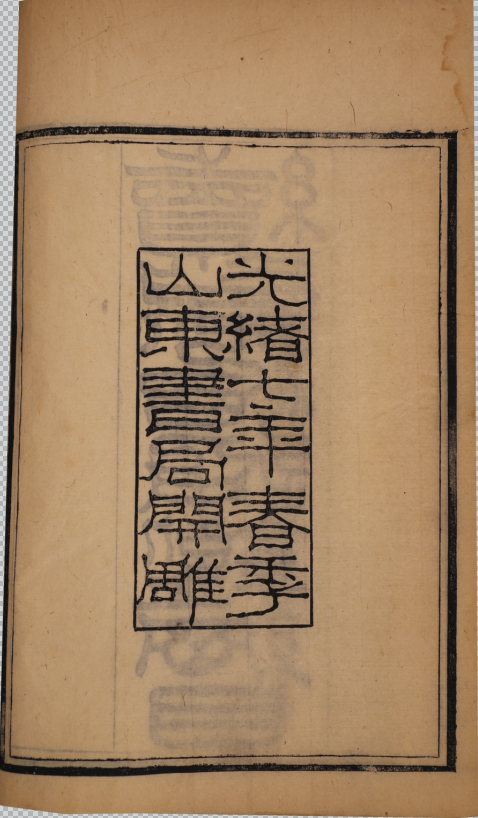 光緒七年春季
山東書局開雕